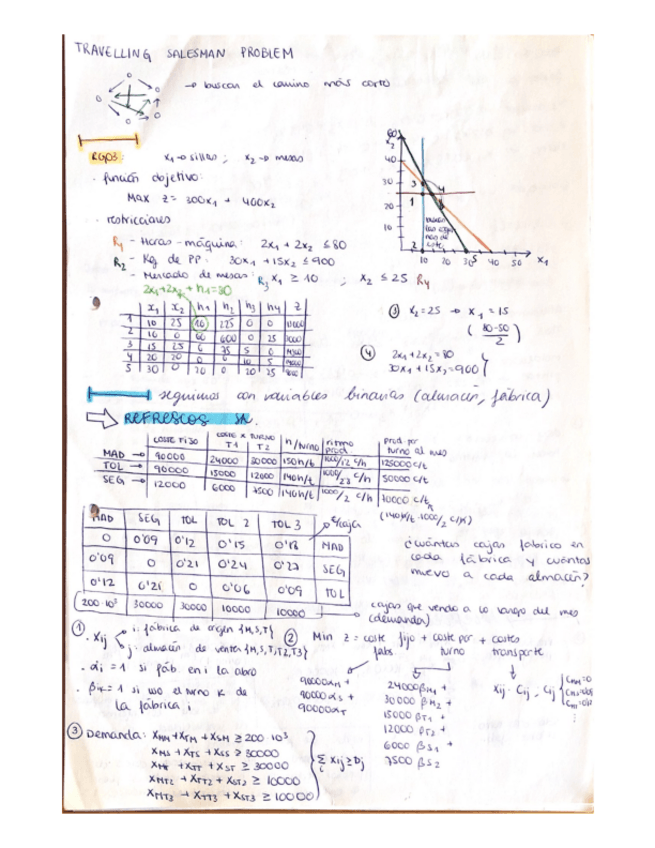 TRAVELLING SALESMAN PROBLEM
→ buscan el camino más corto
RGPD3: x1 → sillas ; x2 → mesas
· función objetivo:
Max z = 300x1 + 400x2
· restricciones
R1 - Horas-máquina: 2x1 + 2x2 ≤ 80
R2 - Kg de PP: 30x1 + 15x2 ≤ 900
- Mercado de mesas: R3 x1 ≥ 10 ; x2 ≤ 25 R4
2x1+2x2 + h1 = 80
x1 x2 h1 h2 h3 h4 z
1 10 25 10 225 0 0
2 10 0 60 600 0 25
3 15 25 0 75 5 0
4 20 20 0 0 10 5
5 30 0 20 0 20 25
x2
60
40
30
20
10
10 20 30 40 50 x1
③ x2 = 25 → x1 = 15
(80-50
2)
④ 2x1 + 2x2 = 80
30x1 + 15x2 = 900
seguimos con variables binarias (almacén, fábrica)
REFRESCOS SA.
COSTE FIJO COSTE X TURNO T1 T2 h/turno ritmo prod. prod. por turno al mes
MAD → 90000 24000 30000 150h/t 125000 c/t
TOL → 90000 15000 12000 140h/t 50000 c/t
SEG → 12000 6000 7500 140h/t 1000/2 c/h 70000 c/t
(140h/t · 1000/2 c/h)
MAD SEG TOL TOL 2 TOL 3 €/caja
0 0'09 0'12 0'15 0'18 MAD
0'09 0 0'21 0'24 0'27 SEG
0'12 0'21 0 0'06 0'09 TOL
200·10³ 30000 30000 10000 10000
¿cuántas cajas fabrico en
cada fábrica y cuántas
muevo a cada almacén?
cajas que vendo a lo largo del mes
(demanda)
① · Xij i: fábrica de origen {M,S,T}
j: almacén de ventas {M,S,T,T2,T3}
· αi = 1 si fáb. en i la abro
· βik = 1 si uso el turno k de
la fábrica i
② Min z = coste fijo fab. + coste por turno + costes transporte
90000αM +
90000αS +
90000αT
24000βM1 +
30000βM2 +
15000βT1 +
12000βT2 +
6000βS1 +
7500βS2
Xij · Cij, Cij
③ Demanda: XMM + XTM + XSM ≥ 200·10³
XMS + XTS + XSS ≥ 30000
XMT + XTT + XST ≥ 30000
XMT2 + XTT2 + XST2 ≥ 10000
XMT3 + XTT3 + XST3 ≥ 10000
Σ Xij ≥ Dj
i